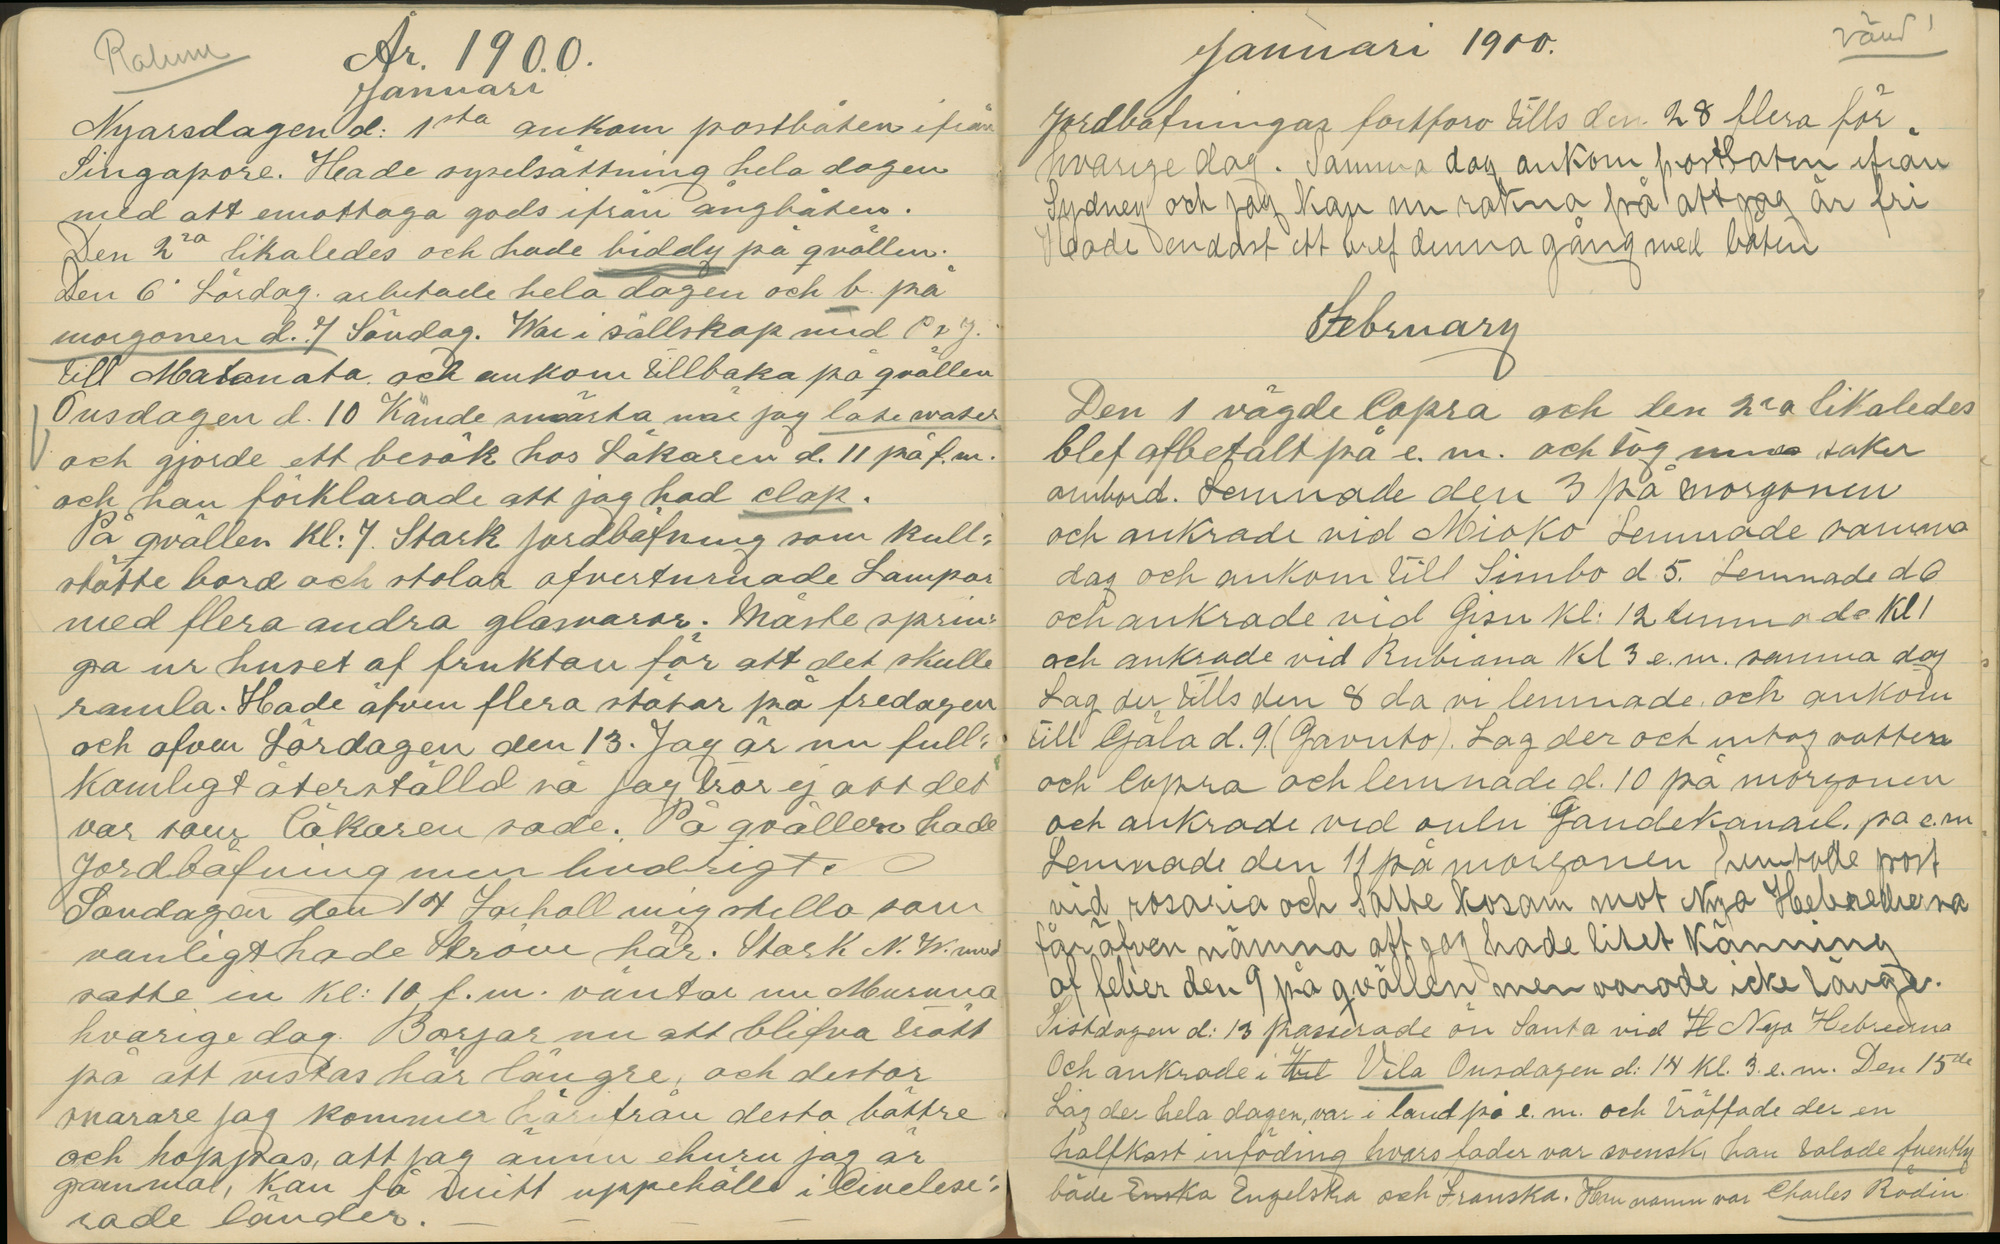 Ralum
År. 1900.
Januari
Nyarsdagen d: 1sta ankom postbåten ifrån
Singapore. Hade syselsättning hela dagen
med att emottaga gods ifrån ångbåten.
Den 2ra likaledes och hade biddy på qvällen.
Den 6 Lördag. arbetade hela dagen och b. på
morgonen d. 7 Söndag. War i sällskap med P & J.
till Matanata. och ankom tillbaka på qvällen
Onsdagen d. 10 Kände smärta när jag late water
och gjorde ett besök hos Läkaren d. 11 på f.m.
och han förklarade att jag had clap.
På qvällen Kl: 7. Stark jordbäfning som kull=
stötte bord och stolar ofverturnade Lampor
med flera andra glasvaror. Måste sprin=
ga ur huset af fruktan för att det skulle
ramla. Hade äfven flera stötar på fredagen
och ofven Lördagen den 13. Jag är nu full=
Komligt återställd så jag tror ej att det
var som Läkaren sade. På qvällen hade
Jordbäfning men lindrigt.
Sondagen den 14 Jag holl mig stilla som
vanligt hade Ströve här. Stark N. W. mvd
satte in Kl: 10 f.m. väntar nu Muruna
hvarige dag. Borjar nu att blifva trött
på att vistas här längre, och destor
snarare jag kommer härifrån desto bättre
och hoppas, att jag ännu ehuru jag är
gammal, Kan få mitt uppehälle i Civelese=
rade länder.
Januari 1900.
vänd!
Jordbäfningar fortforo tills den 28 flera för
hvarige dag. Samma dag ankom postbaten ifran
Sydney och jag Kan nu räkna på att jag är fri
Hade endast ett bref denna gång med båten
February
Den 1 vägde Copra och den 2ra likaledes
blef afbetalt på e. m. och tog mina saker
ombord. Lemnade den 3 på morgonen
och ankrade vid Mioko Lemnade samma
dag och ankom till Simbo d 5. Lemnade d 6
och ankrade vid Gisu Kl: 12 lemnade Kl 1
och ankrade vid Rubiana Kl 3 e. m. samma dag
Lag der tills den 8 da vi lemnade. och ankom
till Gäla d. 9. (Gavuto). Lag der och intog vatten
och Copra och lemnade d. 10 på morgonen
och ankrade vid Gaudekanael. pa e. m
Lemnade den 11 på morgonen hemtade post
vid rosaria och satte Kosam mot Nya Hebrederna
får äfven nämna att jag hade litet Känning
af feber den 9 på qvällen men varade icke länge.
Tistdagen d: 13 passerade ön Santa vid H Nya Hebreerna
Och ankrade i Vila Onsdagen d: 14 Kl. 3. e. m. Den 15de
Låg der hela dagen, var i land på e. m. och träffade der en
halfkast inföding hvars fader var svensk, han talade fluently
både Enska Engelska och Franska. Hans namn var Charles Rodin